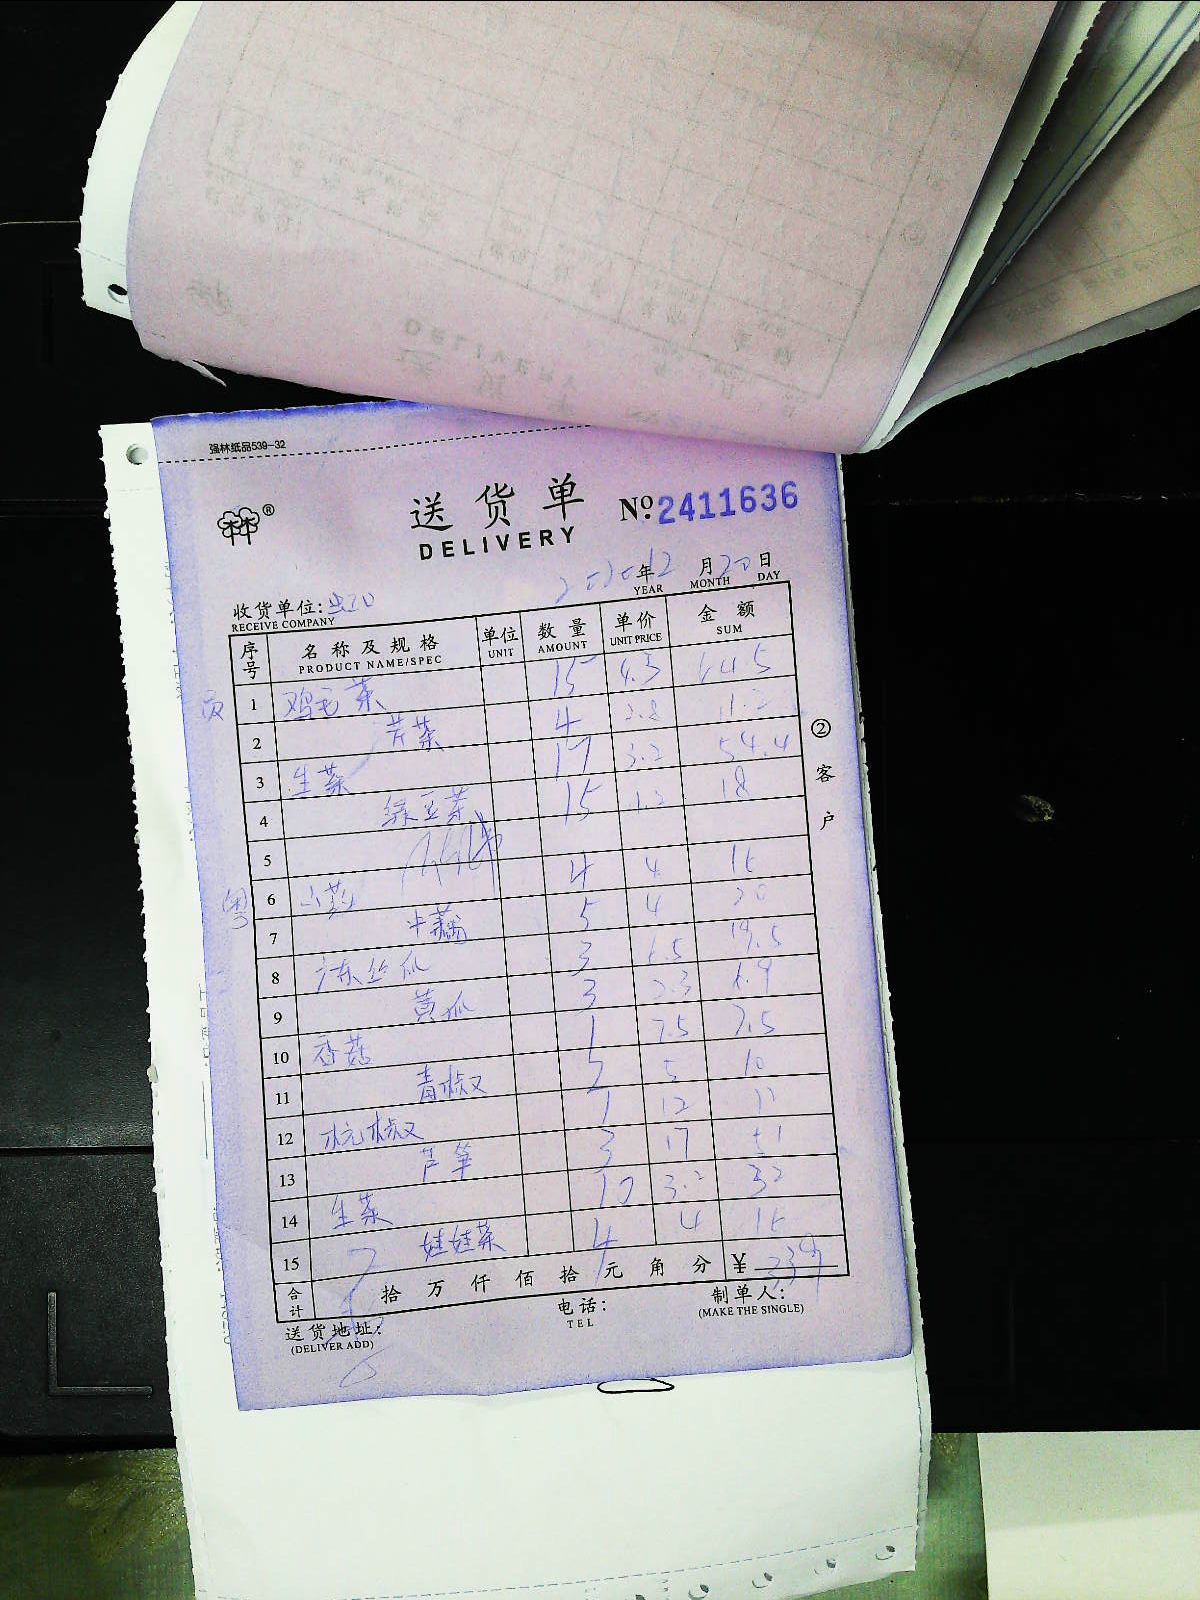 强林纸品539-32
林林®
送货单 №:2411636
DELIVERY
2020年12月20日
YEAR MONTH DAY
收货单位:
RECEIVE COMPANY
序号 名称及规格 单位 数量 单价 金额
PRODUCT NAME/SPEC UNIT AMOUNT UNIT PRICE SUM
1 鸡毛菜 15 4.3 64.5
2 芹菜 4 2.8 11.2
3 生菜 17 3.2 54.4
4 绿豆芽 15 1.2 18
5
6 山药 4 4 16
粤
7 牛藕 5 4 20
8 广东丝瓜 3 6.5 19.5
9 黄瓜 3 2.3 6.9
10 香菇 1 7.5 7.5
11 青椒 2 5 10
12 杭椒 1 12 12
13 芦笋 3 17 51
14 生菜 10 3.2 32
15 娃娃菜 4 4 16
合计 拾万仟佰拾元角分 ¥ 339
②客户
送货地址: 电话: 制单人:
(DELIVER ADD) TEL (MAKE THE SINGLE)